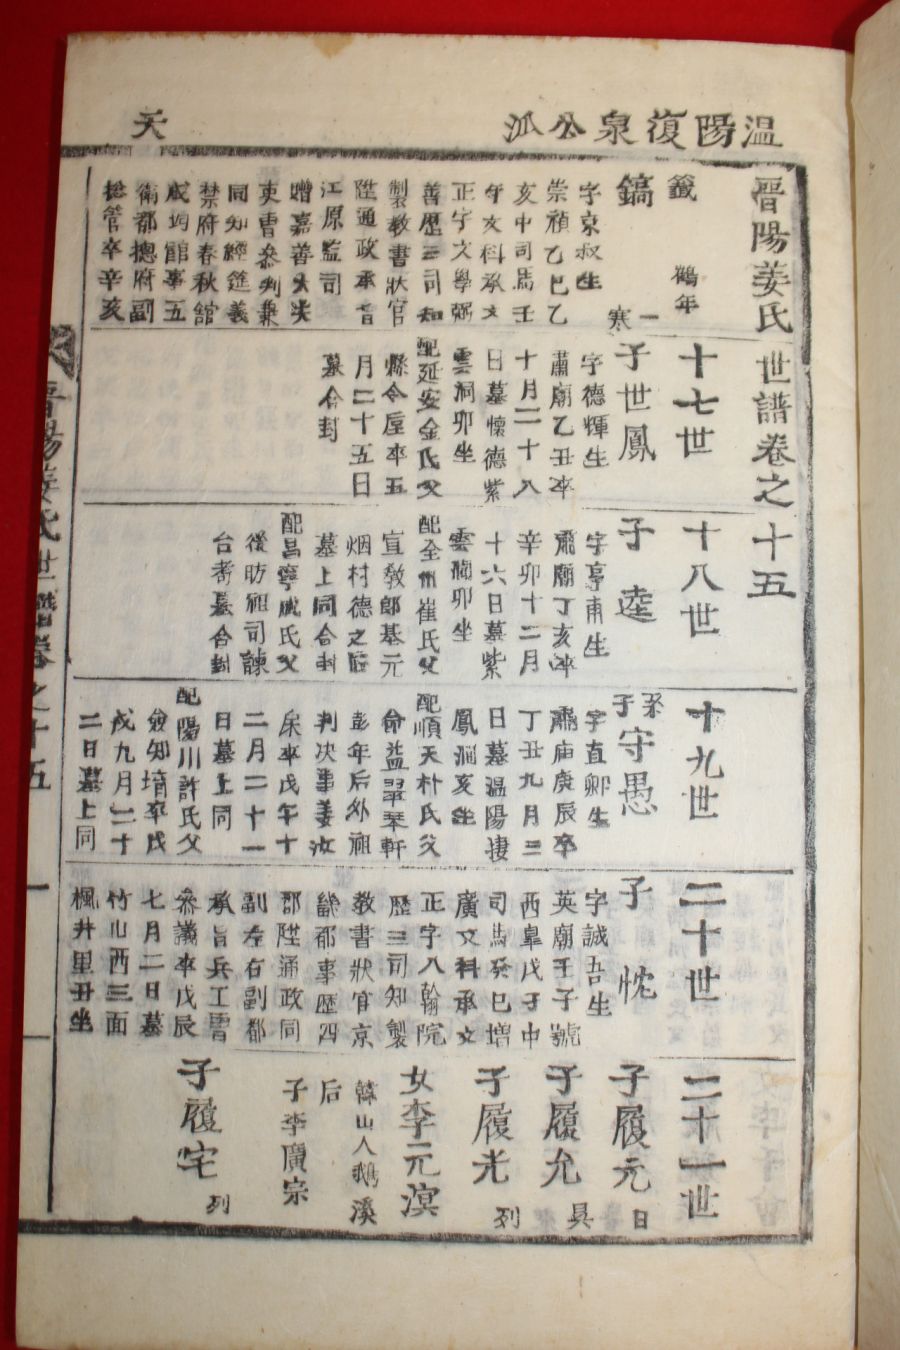 溫陽復泉公派
天
晋陽姜氏世譜卷之十五
籤 鶴年
鎬 一寒
字京叔生
崇禎乙巳乙
亥中司馬壬
午文科承文
正字文學弼
善歷三司知
製教書狀官
陞通政承旨
江原監司
贈嘉善大夫
吏曹參判兼
同知經筵義
禁府春秋館
成均館事五
衛都摠府副
摠管卒辛亥
十七世
子世鳳
字德輝生
肅廟乙丑卒
十月二十八
日墓懷德紫
雲洞卯坐
配延安金氏父
縣令垕卒五
月二十五日
墓合封
十八世
子逵
字亨甫生
肅廟丁亥卒
辛卯十二月
十六日墓紫
雲洞卯坐
配全州崔氏父
宣敎郎基元
烟村德之后
墓上同合封
配昌寧成氏父
後昉祖司諫
台耉墓合封
十九世
系子守思
字直卿生
肅庙庚辰卒
丁丑九月三
日墓溫陽捿
鳳洞亥坐
配順天朴氏父
命益翠琴軒
彭年后外祖
判决事姜汝
㦿卒戊午十
二月二十一
日墓上同
配陽川許氏父
僉知堉卒戊
戌九月二十
二日墓上同
二十世
子忱
字誠吾生
英廟壬子號
西皐戊子中
司馬癸巳增
廣文科承文
正字入翰院
歷三司知製
教書狀官京
畿都事歷四
郡陞通政同
副左右副都
承旨兵工曺
參議卒戊辰
七月二日墓
竹山西三面
楓井里丑坐
二十一世
子履元 日
子履允 昊
子履光 列
女李元溟
韓山人鵝溪
后
子李廣宗
子履宅 列
晋陽姜氏世譜卷之十五
一